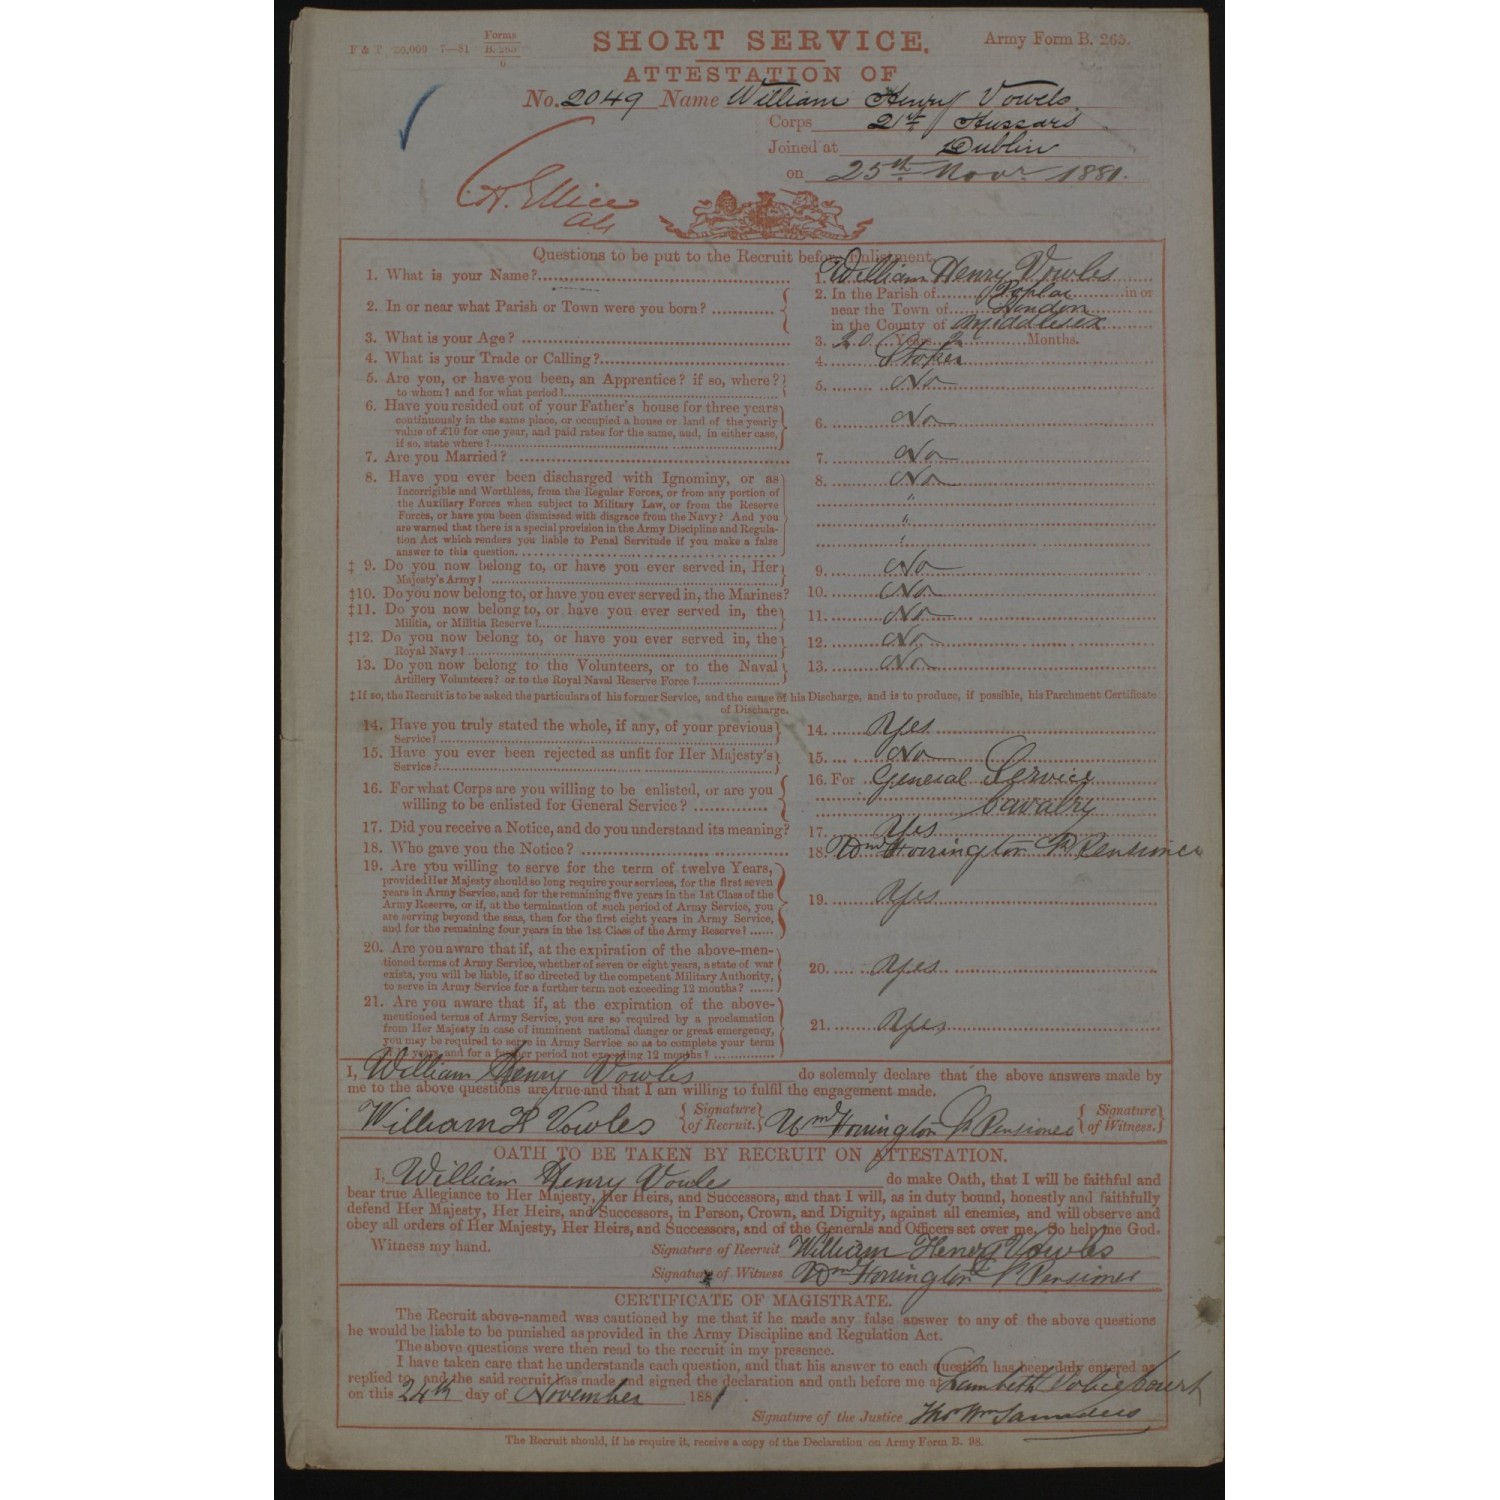 F & T 20,000 7—81
Forms
B. 265
6
SHORT SERVICE.
Army Form B. 265.
ATTESTATION OF
No. 2049 Name William Henry Vowels
Corps 21st Hussars
Joined at Dublin
on 25th Novr. 1881.
Questions to be put to the Recruit before Enlistment.
1. What is your Name? 1. William Henry Vowles
2. In or near what Parish or Town were you born? 2. In the Parish of Poplar in or
near the Town of London
in the County of Middlesex
3. What is your Age? 3. 20 Years 2 Months.
4. What is your Trade or Calling? 4. Stoker
5. Are you, or have you been, an Apprentice? if so, where? 5. No
to whom? and for what period?
6. Have you resided out of your Father's house for three years
continuously in the same place, or occupied a house or land of the yearly 6. No
value of £10 for one year, and paid rates for the same, and, in either case,
if so, state where?
7. Are you Married? 7. No
8. Have you ever been discharged with Ignominy, or as 8. No
Incorrigible and Worthless, from the Regular Forces, or from any portion of "
the Auxiliary Forces when subject to Military Law, or from the Reserve
Forces, or have you been dismissed with disgrace from the Navy? And you "
are warned that there is a special provision in the Army Discipline and Regula-
tion Act which renders you liable to Penal Servitude if you make a false "
answer to this question.
‡ 9. Do you now belong to, or have you ever served in, Her 9. No
Majesty's Army?
‡10. Do you now belong to, or have you ever served in, the Marines? 10. No
‡11. Do you now belong to, or have you ever served in, the 11. No
Militia, or Militia Reserve?
‡12. Do you now belong to, or have you ever served in, the 12. No
Royal Navy?
13. Do you now belong to the Volunteers, or to the Naval 13. No
Artillery Volunteers? or to the Royal Naval Reserve Force?
‡ If so, the Recruit is to be asked the particulars of his former Service, and the cause of his Discharge, and is to produce, if possible, his Parchment Certificate
of Discharge.
14. Have you truly stated the whole, if any, of your previous 14. Yes
Service?
15. Have you ever been rejected as unfit for Her Majesty's 15. No
Service?
16. For what Corps are you willing to be enlisted, or are you 16. For General Service
willing to be enlisted for General Service? Cavalry
17. Did you receive a Notice, and do you understand its meaning? 17. Yes
18. Who gave you the Notice? 18. Wm Horrington Pensioner
19. Are you willing to serve for the term of twelve Years,
provided Her Majesty should so long require your services, for the first seven
years in Army Service, and for the remaining five years in the 1st Class of the 19. Yes
Army Reserve, or if, at the termination of such period of Army Service, you
are serving beyond the seas, then for the first eight years in Army Service,
and for the remaining four years in the 1st Class of the Army Reserve?
20. Are you aware that if, at the expiration of the above-men-
tioned terms of Army Service, whether of seven or eight years, a state of war 20. Yes
exists, you will be liable, if so directed by the competent Military Authority,
to serve in Army Service for a further term not exceeding 12 months?
21. Are you aware that if, at the expiration of the above-
mentioned terms of Army Service, you are so required by a proclamation 21. Yes
from Her Majesty in case of imminent national danger or great emergency,
you may be required to serve in Army Service so as to complete your term
years, and for a further period not exceeding 12 months?
I, William Henry Vowles do solemnly declare that the above answers made by
me to the above questions are true and that I am willing to fulfil the engagement made.
William H Vowles { Signature of Recruit. } Wm Horrington Pensioner { Signature of Witness. }
OATH TO BE TAKEN BY RECRUIT ON ATTESTATION.
I, William Henry Vowles do make Oath, that I will be faithful and
bear true Allegiance to Her Majesty, Her Heirs, and Successors, and that I will, as in duty bound, honestly and faithfully
defend Her Majesty, Her Heirs, and Successors, in Person, Crown, and Dignity, against all enemies, and will observe and
obey all orders of Her Majesty, Her Heirs, and Successors, and of the Generals and Officers set over me. So help me God.
Witness my hand. Signature of Recruit William Henry Vowles
Signature of Witness Wm Horrington Pensioner
CERTIFICATE OF MAGISTRATE.
The Recruit above-named was cautioned by me that if he made any false answer to any of the above questions
he would be liable to be punished as provided in the Army Discipline and Regulation Act.
The above questions were then read to the recruit in my presence.
I have taken care that he understands each question, and that his answer to each question has been duly entered as
replied to, and the said recruit has made and signed the declaration and oath before me at Lambeth Police Court
on this 24th day of November 1881
Signature of the Justice Thos Wm Saunders
The Recruit should, if he require it, receive a copy of the Declaration on Army Form B. 98.